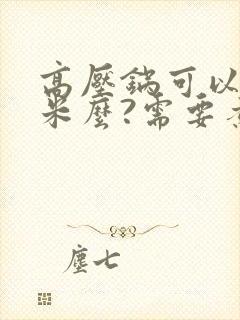 高壓鍋可以
米麼?需要
塵七